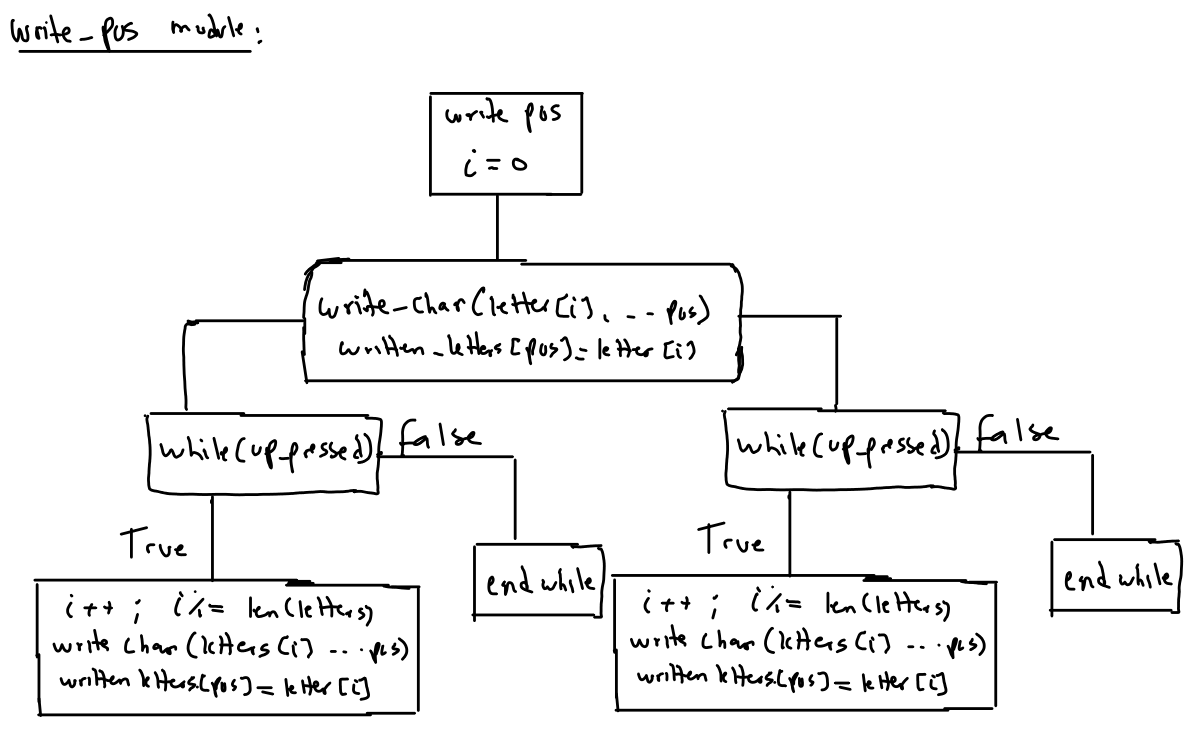 write_pos module:
write pos
i = 0
write_char(letter[i], -- pos)
written_letters[pos] = letter[i]
while(up_pressed)
False
True
end while
i++ ; i%= len(letters)
write char(letters[i] ... pos)
written letters[pos] = letter[i]
while(up_pressed)
False
True
end while
i++ ; i%= len(letters)
write char(letters[i] ... pos)
written letters[pos] = letter[i]